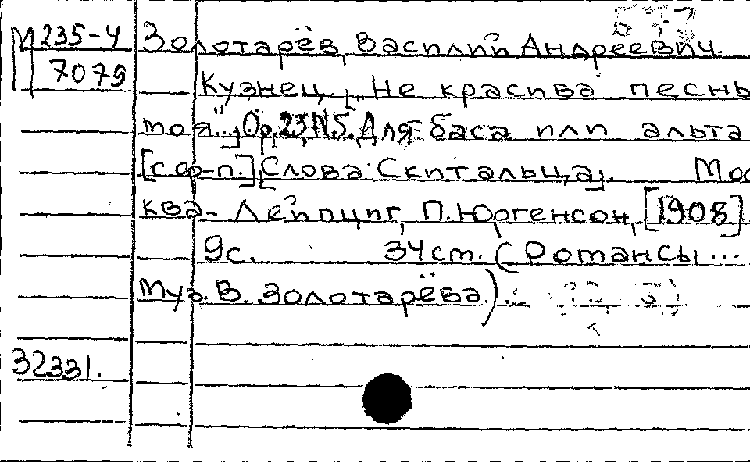 М 235-4
7079
Золотарёв, Василий Андреевич.
Кузнец. „Не красива песнь
моя"... Ор.23,N5. Для баса или альта
[с ф-п.] Слова: Скитальца. Мос
ква - Лейпциг, П. Юргенсон, [1908].
9с. 34см. (Романсы...
муз. В. Золотарёва).
32331.